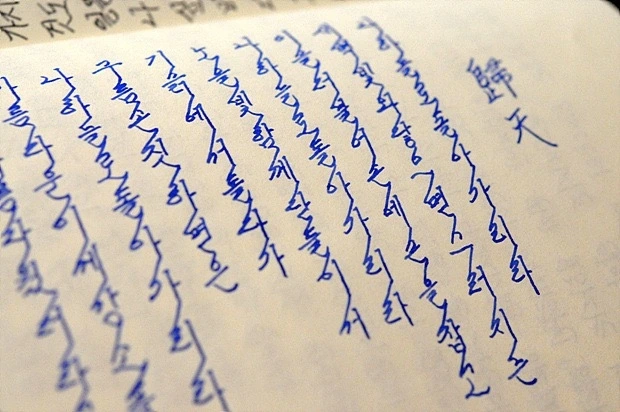 歸天
나 하늘로 돌아가리라
새벽빛 와 닿으면 스러지는
이슬 더불어 손에 손을 잡고
나 하늘로 돌아가리라
노을빛 함께 단 둘이서
기슭에서 놀다가
구름 손짓하면은
나 하늘로 돌아가리라
아름다운 이 세상 소
름다웠더라